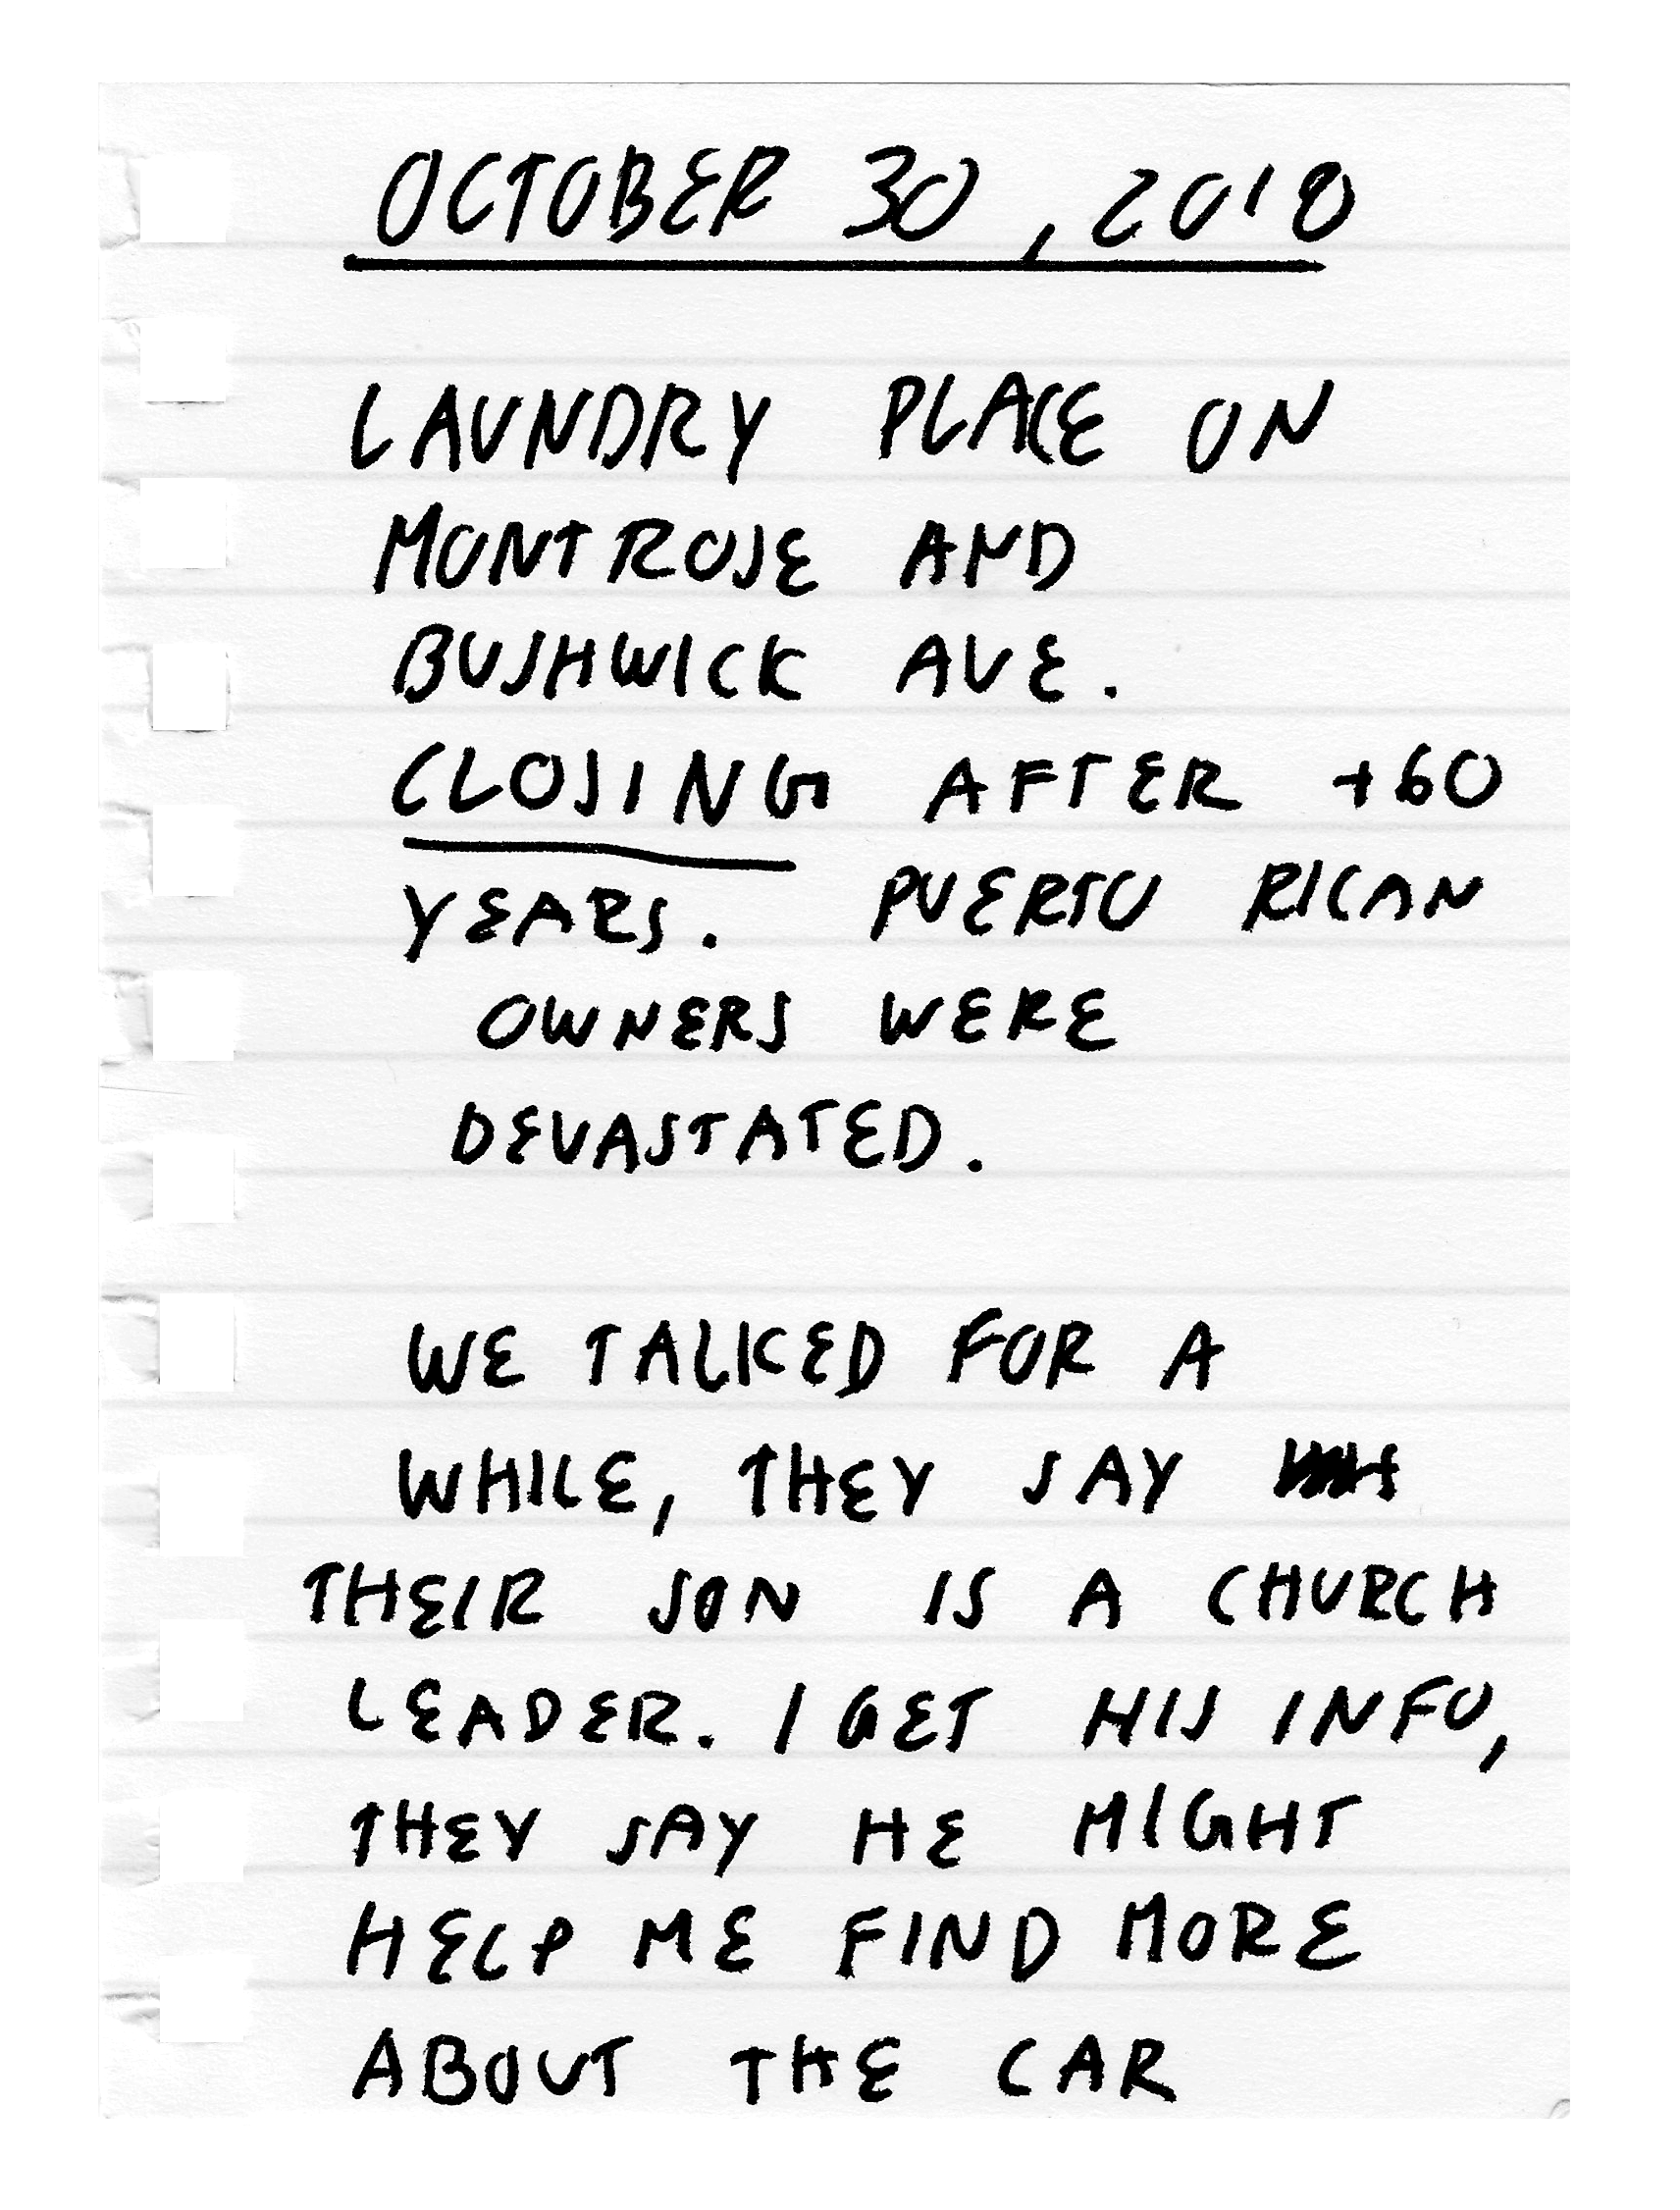 OCTOBER 30, 2018
LAUNDRY PLACE ON
MONTROSE AND
BUSHWICK AVE.
CLOSING AFTER +60
YEARS. PUERTO RICAN
OWNERS WERE
DEVASTATED.
WE TALKED FOR A
WHILE, THEY SAY
THEIR SON IS A CHURCH
LEADER. I GET HIS INFO,
THEY SAY HE MIGHT
HELP ME FIND MORE
ABOUT THE CAR